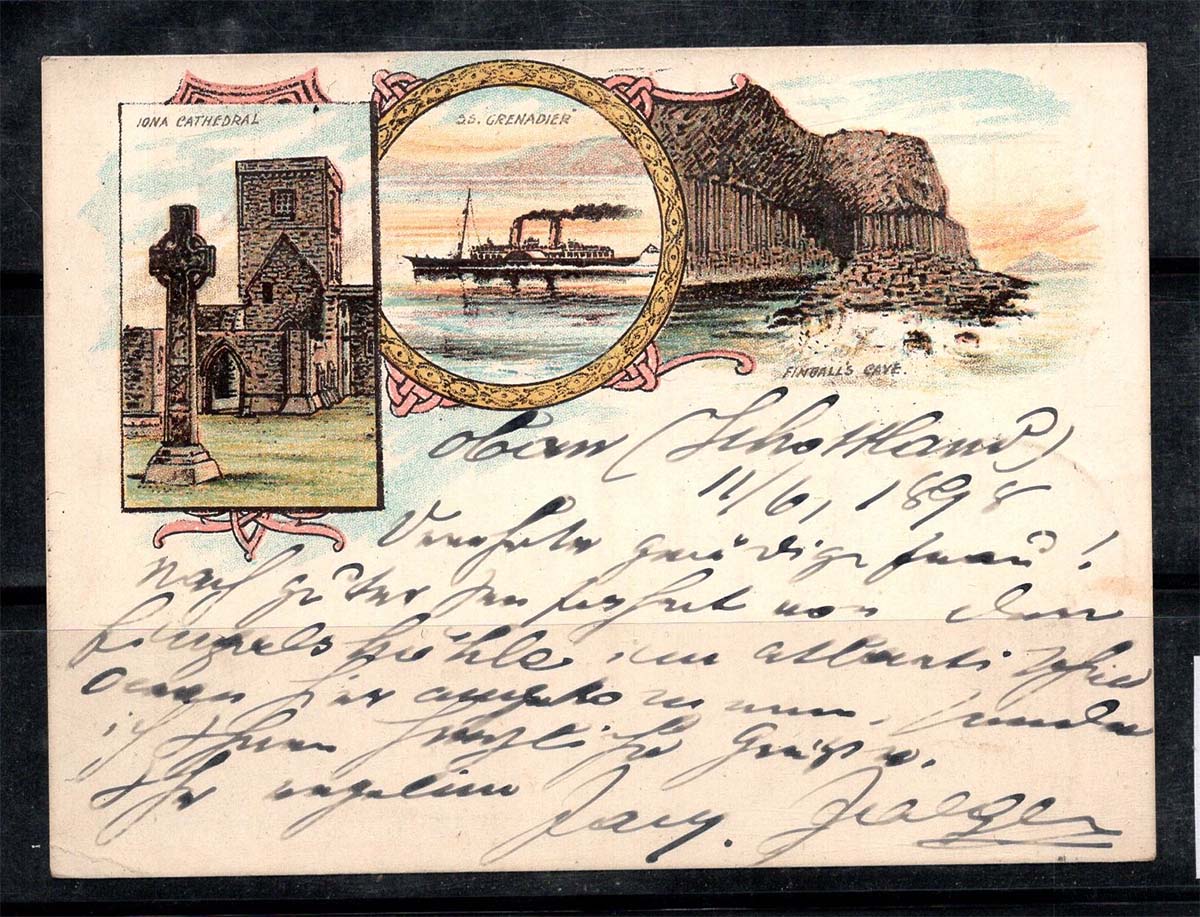 IONA CATHEDRAL
S.S. GRENADIER
FINGALL'S CAVE.
Oban (Schottland)
11/6, 1898
Verehrte gnädige Frau!
Nach guter Seefahrt von der
Fingalshöhle im atlantischen
Ocean hier angekommen, sende
ich Ihnen herzliche Grüsse.
Ihr
Jaeger